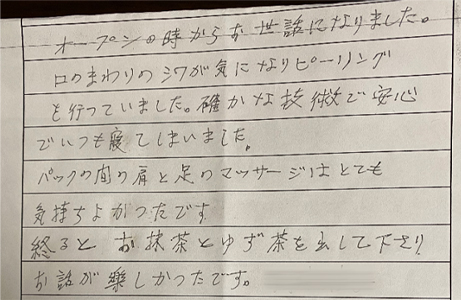 オープンの時からお世話になりました。
口のまわりのシワが気になりピーリング
を行っていました。確かな技術で安心
でいつも寝てしまいました。
パックの間の肩と足のマッサージはとても
気持ちよかったです
終ると お抹茶とゆず茶を出して下さり
お話が楽しかったです。